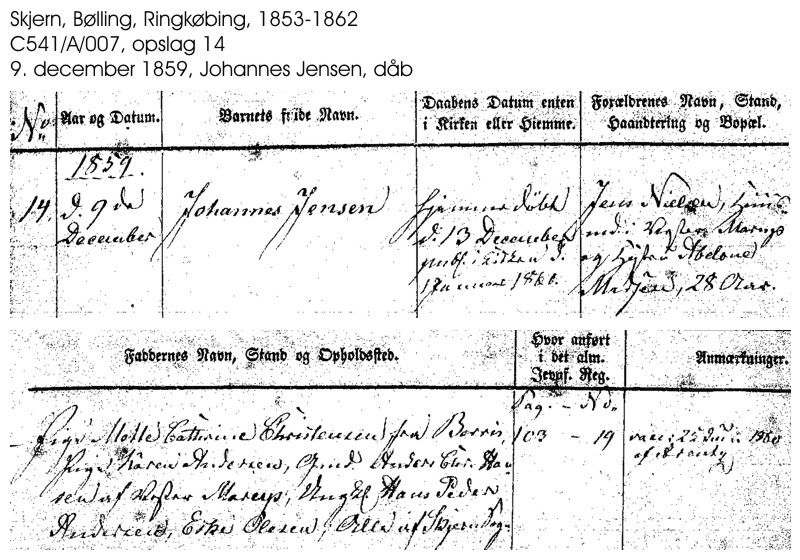 Skjern, Bølling, Ringkøbing, 1853-1862
C541/A/007, opslag 14
9. december 1859, Johannes Jensen, dåb
No.
Aar og Datum.
Barnets fulde Navn.
Daabens Datum enten
i Kirken eller Hjemme.
Forældrenes Navn, Stand,
Haandtering og Bopæl.
1859.
14. d. 9de
December
Johannes Jensen
hjemmedøbt
d. 13 December
publ. i Kirken d.
Januar 1860.
Jens Nielsen, Huus-
md. i Vester Marup
og Hustru Abelone
Madsen, 28 Aar.
Faddernes Navn, Stand og Opholdssted.
Hvor anført
i det alm.
Jevnf. Reg.
Anmærkninger.
Pag. - No.
Pige Mette Cathrine Christensen fra Borris,
Pige Karen Andersen, Gmd. Anders Chr. Han-
sen af Vester Marup, Ungkl. Hans Peder
Andersen, Eske Olesen, Alle af Skjern Sogn
103 - 19
1860
af